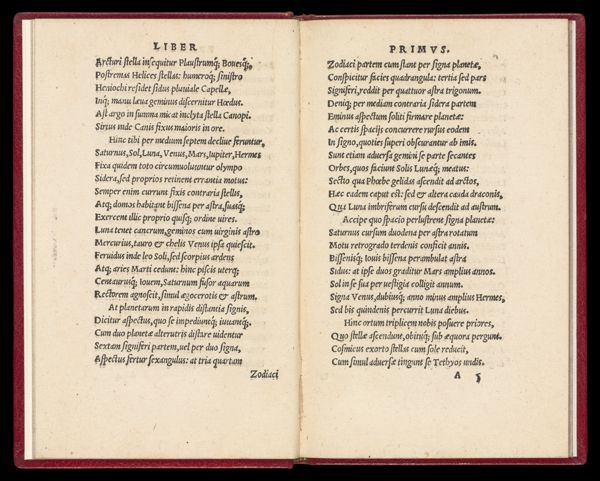 LIBER
Arcturi stella insequitur Plaustrumq́; Bouesq́;,
Postremas Helices stellas: humeroq́; sinistro
Heniochi residet sidus pluuiale Capellæ,
Inq́; manu læua geminus discernitur Hœdus.
Ast argo in summa micat inclyta stella Canopi.
Sirius inde Canis fixus maioris in ore.
Hinc tibi per medium septem decliue feruntur,
Saturnus, Sol, Luna, Venus, Mars, Iupiter, Hermes
Fixa quidem toto circumuoluuntur olympo
Sidera, sed proprios retinent errantia motus:
Semper enim currunt fixis contraria stellis,
Atq; domos habitant bissena per astra, suasq́;
Exercent illic proprio quisq; ordine uires.
Luna tenet cancrum, geminos cum uirginis astro
Mercurius, tauro & chelis Venus ipsa quiescit.
Feruidus inde leo Soli, sed scorpius ardens
Atq; aries Marti cedunt: hinc piscis uterq;
Centaurusq́; Iouem, Saturnum fusor aquarum
Rectorem agnoscit, simul ægocerotis & astrum.
At planetarum in rapidis distantia signis,
Dicitur aspectus, quo se impediuntq́; iuuantq́;.
Cum duo planetæ alterutris distare uidentur
Sextam signiferi partem, uel per duo signa,
Aspectus fertur sexangulus: at tria quartam
Zodiaci
PRIMVS.
Zodiaci partem cum stant per signa planetæ,
Conspicitur facies quadrangula: tertia sed pars
Signiferi, reddit per quattuor astra trigonum.
Deniq; per mediam contraria sidera partem
Eminus aspectum soliti firmare planetæ:
Ac certis spacijs concurrere rursus eodem
In signo, quoties superi obscurantur ab imis.
Sunt etiam aduersa gemini se parte secantes
Orbes, quos faciunt Solis Lunæq́; meatus:
Sectio qua Phœbe gelidas ascendit ad arctos,
Hæc eadem caput est: sed & altera cauda draconis,
Qua Luna imbriferum cursu descendit ad austrum.
Accipe quo spacio perlustrent signa planetæ:
Saturnus cursum duodena per astra rotatum
Motu retrogrado terdenis conficit annis.
Bissenisq́; Iouis bissena perambulat astra
Sidus: at ipse duos graditur Mars amplius annos.
Sol in se sua per uestigia colligit annum.
Signa Venus, dubiusq́; anno minus amplius Hermes,
Sed bis quindenis percurrit Luna diebus.
Hinc ortum triplicem nobis posuere priores,
Quo stellæ ascendunt, obituq́; sub æquora pergunt.
Cosmicus exorto stellas cum sole reducit,
Cum simul aduersæ tingunt se Tethyos undis.
A 5